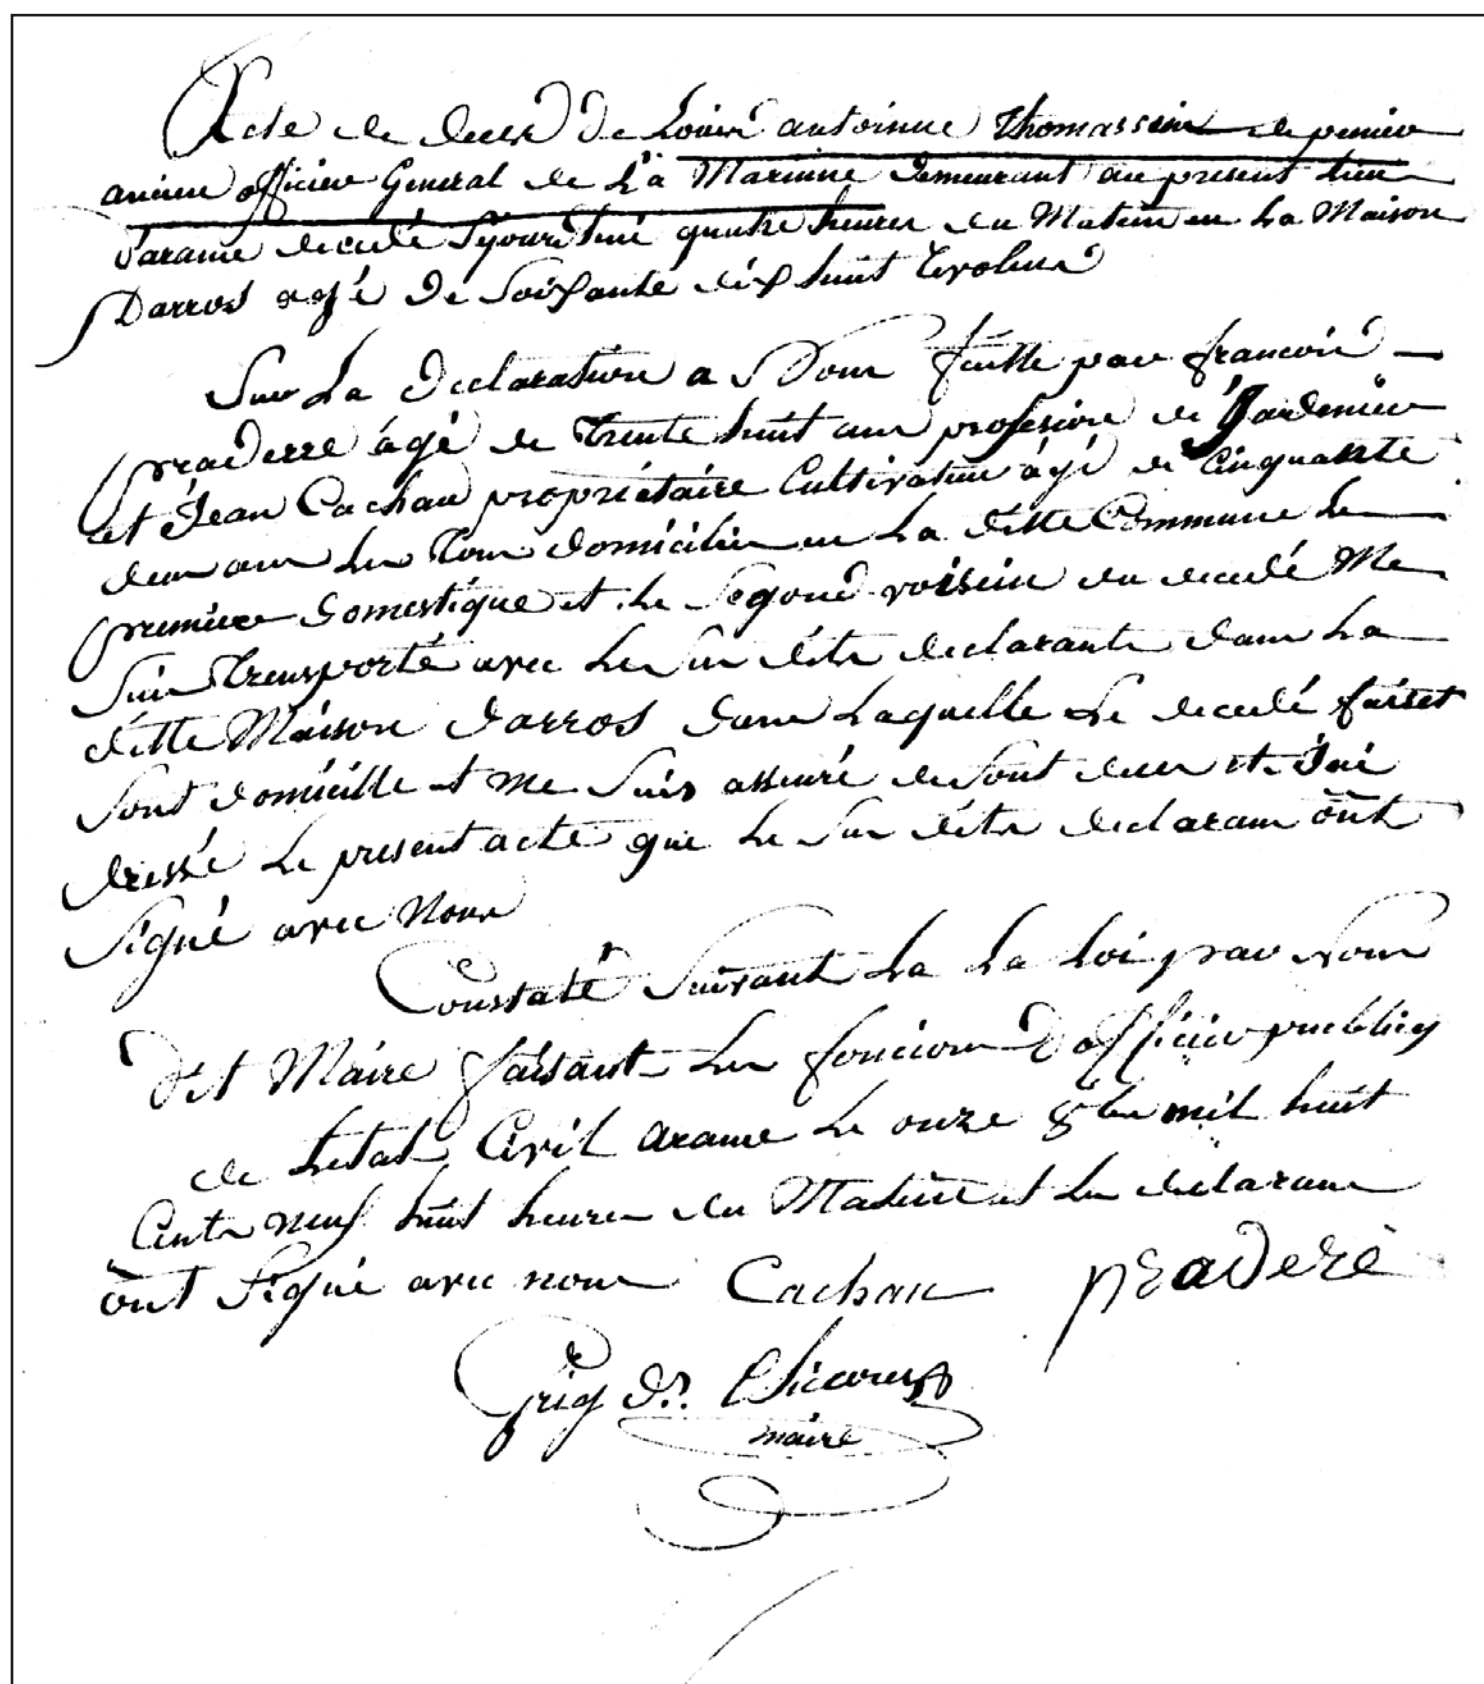 Acte de deces De Louis antoinne Thomassin de penier
ancien officier General de L'a Marinne demeurant au present Lieu
Darame decedé djourdhui quatre heures du Matin en La Maison
Darros agé De Soixante dix huit revolus
Sur La Declaration a Nous faitte par francois
praderre âgé de Trente huit ans profesion de Jardenier
et Jean Cachau propriétaire Cultivateur âgé de Cinquante
deux ans les Tous domiciliés en La ditte Commune Le
premier domestique et Le Segond voisin du decedé Me
Suis Trensporté avec Les Sus dits declarants dans La
ditte Maison darros dans Laquelle Le decedé faiset
Sont domicille et me Suis assuré de Sont deces et Jai
dressé Le present acte que Le Sus dits declarans ônt
Signé avec Nous
Constaté Suivant La La Loi par Nous
dit Maire faisant Les foncions D officier publicq
de Letat Civil arame Le onze 8bre mil huit
Cents neuf huit heures du Matin et Les declarans
ônt Signé avec nous Cachau praderè
maire